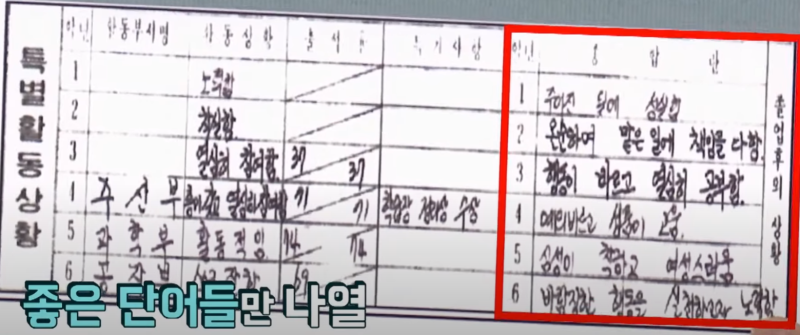 특별활동상황
학년 활동부서명 활동상황 출석율 특기사항
1 노력함
2 착실함
3 열심히 참여함 37 37
4 주산부 흥미갖고 열심히 참여함 71 71 학습장 정리상 수상
5 과학부 활동적임 74 74
6 69
학년 종합란
1 주어진 일에 성실함
2 온순하며 맡은 일에 책임을 다함.
3 행동이 바르고 열심히 공부함.
4 예의바르고 성품이 고움.
5 심성이 착하고 여성스러움
6 바람직한 행동을 실천하고자 노력함
졸업후의 상황
좋은 단어들만 나열